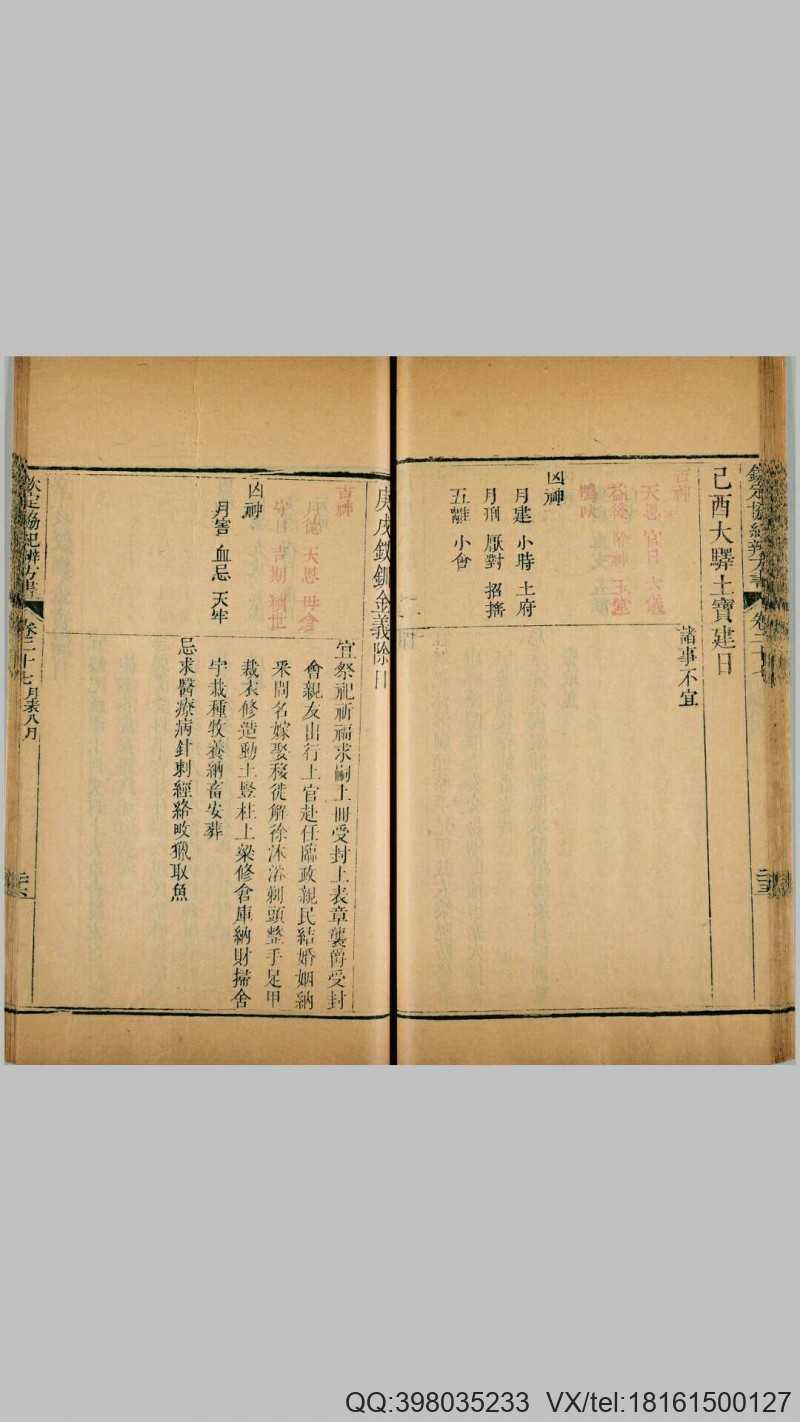 己酉大驛土寶建日
天恩 官日 六儀
凶神
月建 小時 土府
月刑 厭對 招搖
五離 小會
諸事不宜
庚戌釵釧金義除日
吉神
月德 天恩 母倉
守日 吉期 續世
凶神
月害 血忌 天牢
宜祭祀祈福求嗣上冊受封上表章襲爵受封
會親友出行上官赴任臨政親民結婚姻納
采問名嫁娶移徙解除沐浴剃頭整手足甲
裁衣修造動土豎柱上梁修倉庫納財掃舍
宇栽種牧養納畜安葬
忌求醫療病針刺經絡畋獵取魚
欽定協紀辨方書
卷二十七 月表八月
QQ:398035233 VX/tel:18161500127